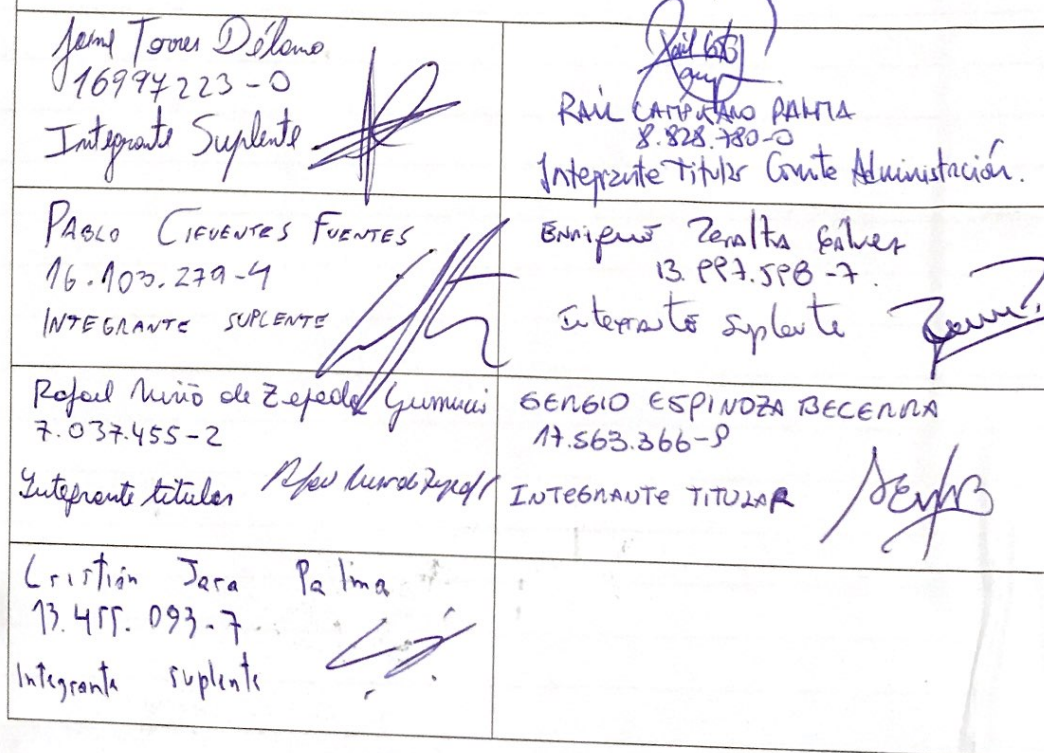 Jaime Torres Délano
16997223-0
Integrante Suplente
RAÚL CAMPUSANO PALMA
8.828.780-0
Integrante Titular Comite Administración.
PABLO CIFUENTES FUENTES
16.103.279-4
INTEGRANTE SUPLENTE
Enrique Peralta Gálvez
13.997.598-7.
Integrante Suplente
Rafael Niño de Zepeda Gumucio
7.037.455-2
Integrante titular
SERGIO ESPINOZA BECERRA
17.563.366-9
INTEGRANTE TITULAR
Cristián Jara Palma
13.455.093-7.
Integrante suplente